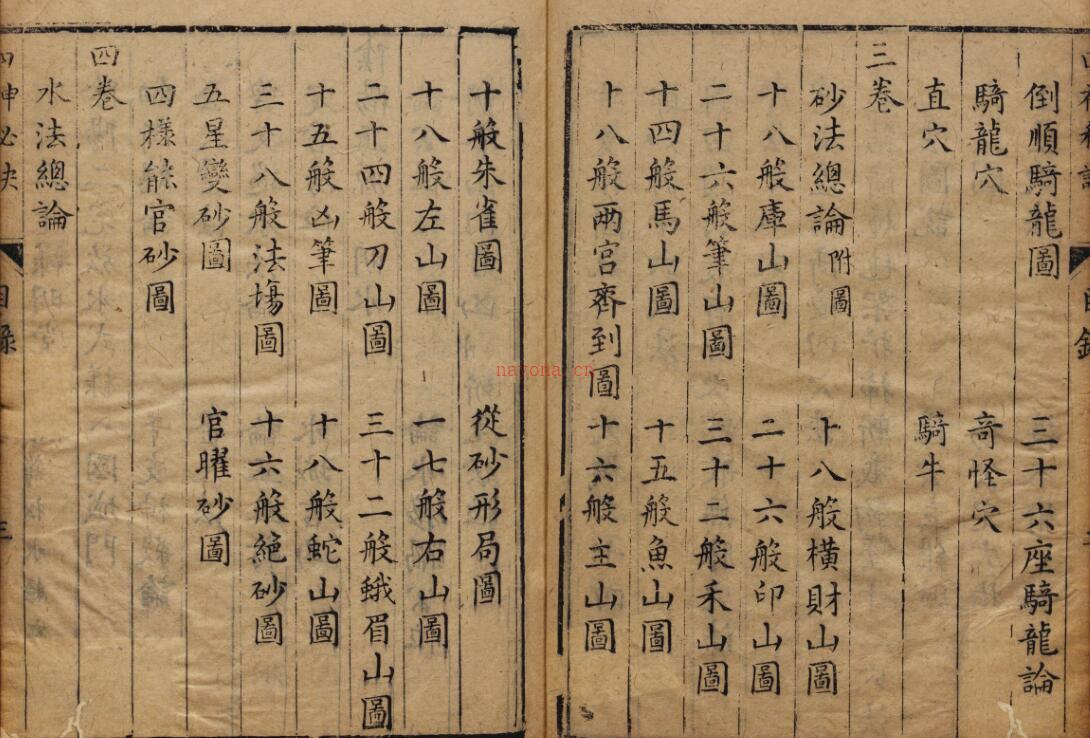 倒順騎龍圖 三十六座騎龍論
騎龍穴 竒怪穴
直穴 騎牛
三卷
砂法總論附圖 十八般橫財山圖
十八般庫山圖 二十六般印山圖
二十六般筆山圖 三十二般禾山圖
十四般馬山圖 十五般魚山圖
十八般兩宮齊到圖 十六般主山圖
十般朱雀圖 從砂形局圖
十八般左山圖 一七般右山圖
二十四般刀山圖 三十二般蛾眉山圖
十五般凶筆圖 十八般蛇山圖
三十八般法塲圖 十六般絕砂圖
五星變砂圖 官曜砂圖
四樣能官砂圖
四卷
水法總論
目錄
nayona.cn